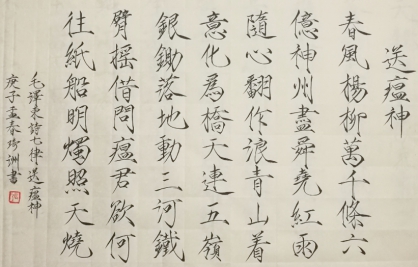 送瘟神
春風楊柳萬千條六
億神州盡舜堯紅雨
隨心翻作浪青山着
意化為橋天連五嶺
銀鋤落地動三河鐵
臂摇借問瘟君欲何
往紙船明燭照天燒
毛澤東詩七律送瘟神
庚子孟春珍洲書